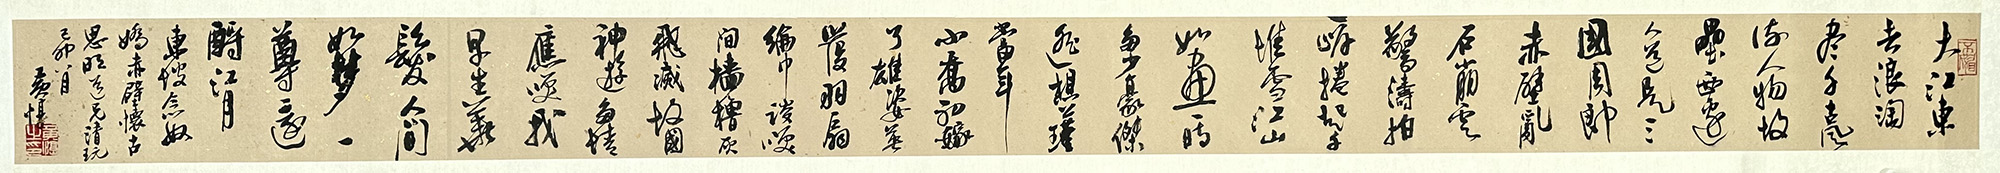 大江東
去浪淘
尽千古風
流人物故
壘西邊
人道是三
國周郎
赤壁亂
石崩雲
驚濤拍
岸捲起千
堆雪江山
如畫一時
多少豪傑
遙想公瑾
當年
小喬初嫁
了雄姿英
發羽扇
綸巾談笑
間檣櫓灰
飛滅故國
神遊多情
應笑我
早生華
髮人間
如夢一
尊還
酹江月
東坡念奴
嬌赤壁懷古
思明道兄清玩
己卯八月
黃惇